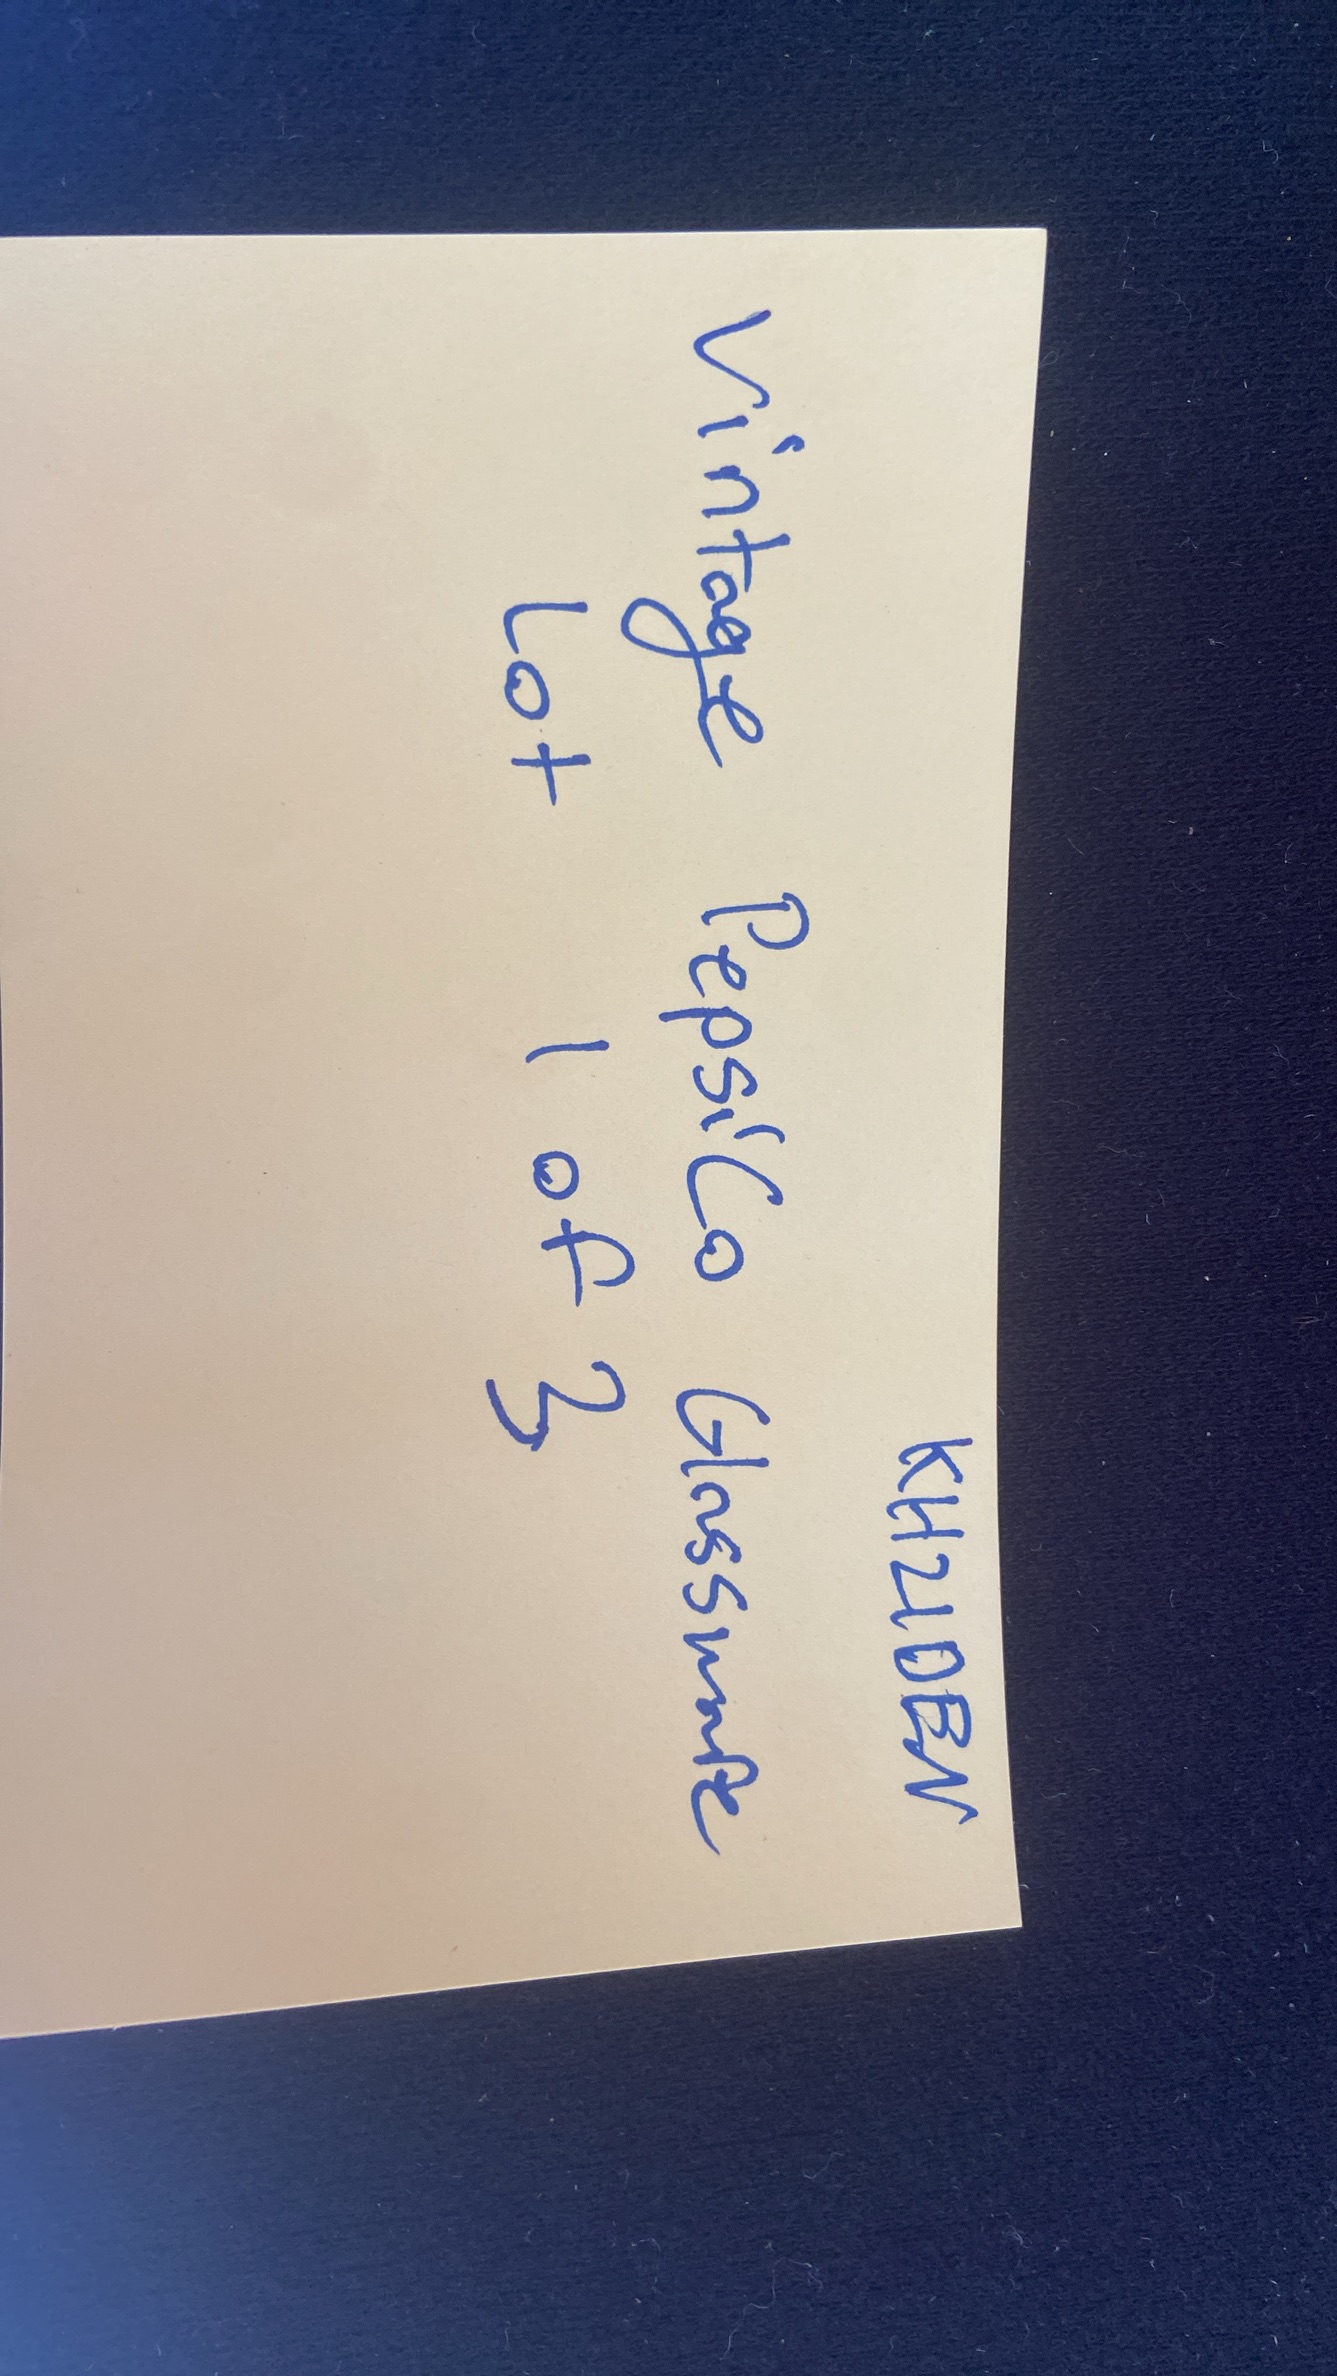 KH210BN
Vintage PepsiCo Glassware
Lot 1 of 3